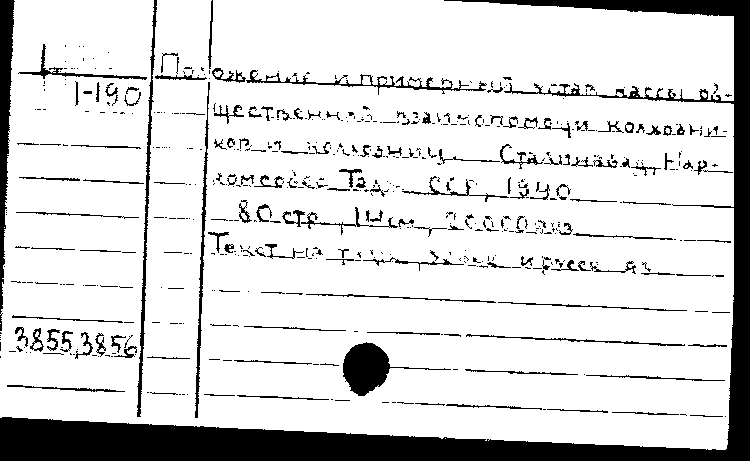 Положение и примерный устав кассы об-
1-190
щественной взаимопомощи колхозни-
ков и колхозниц. Сталинабад, Нар-
комсобес Тадж ССР, 1940
80 стр, 14 см, 20000 экз
Текст на тадж, узбек и русск яз
3855,3856